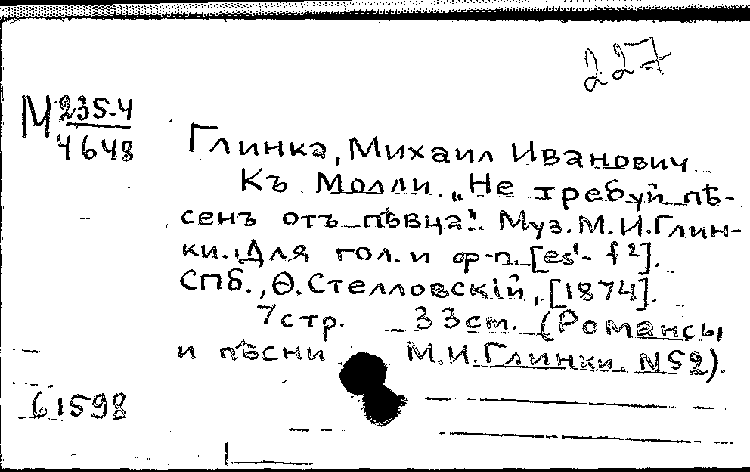 227
М 235-4
4648
Глинка, Михаил Иванович
Къ Молли. „Не требуй пѣ-
сенъ отъ пѣвца". Муз. М.И.Глин-
ки. Для гол. и ф-п. [es¹- f²].
СПб., Ѳ. Стелловскій, [1874].
7 стр. 33 см. (Романсы
и пѣсни М.И.Глинки N52).
61598